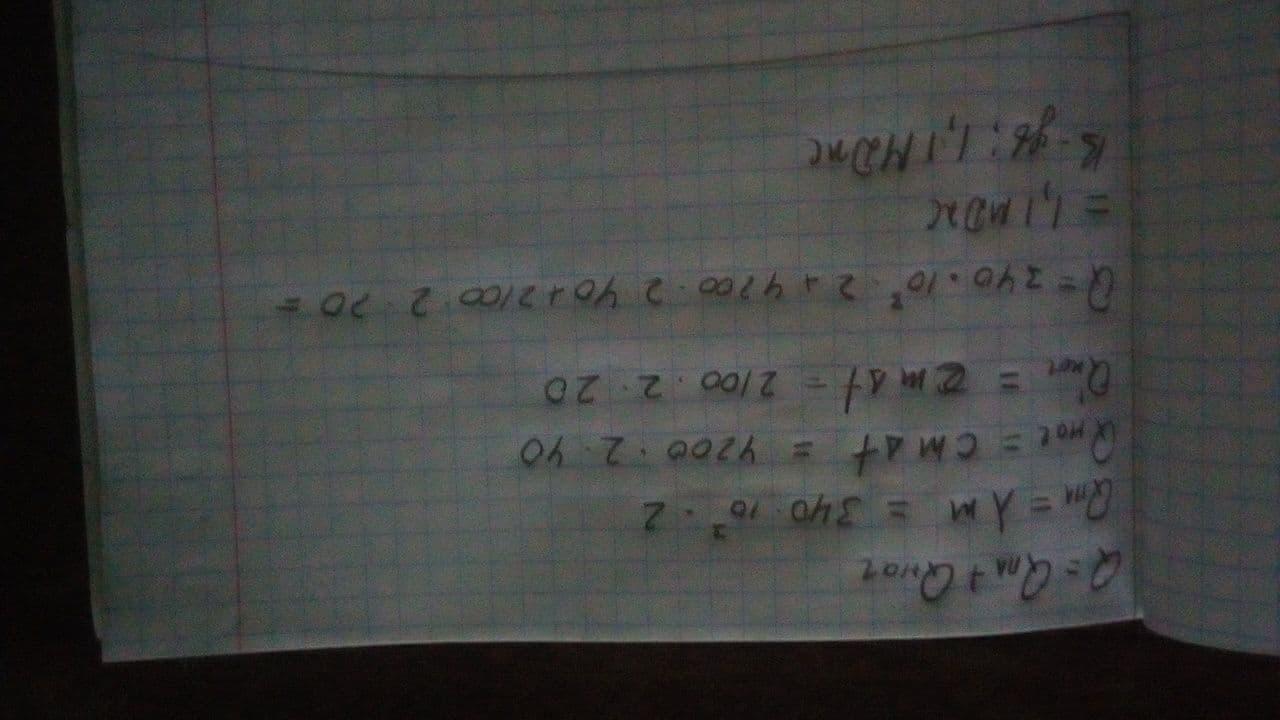 Q = Qпл + Qнаг
Qпл = λm = 340 · 10³ · 2
Qнаг = cmΔt = 4200 · 2 · 40
Q'наг = cmΔt = 2100 · 2 · 20
Q = 340 · 10³ · 2 + 4200 · 2 40 + 2100 · 2 · 20 =
= 1,1 мДж
В-дь: 1,1 МДж